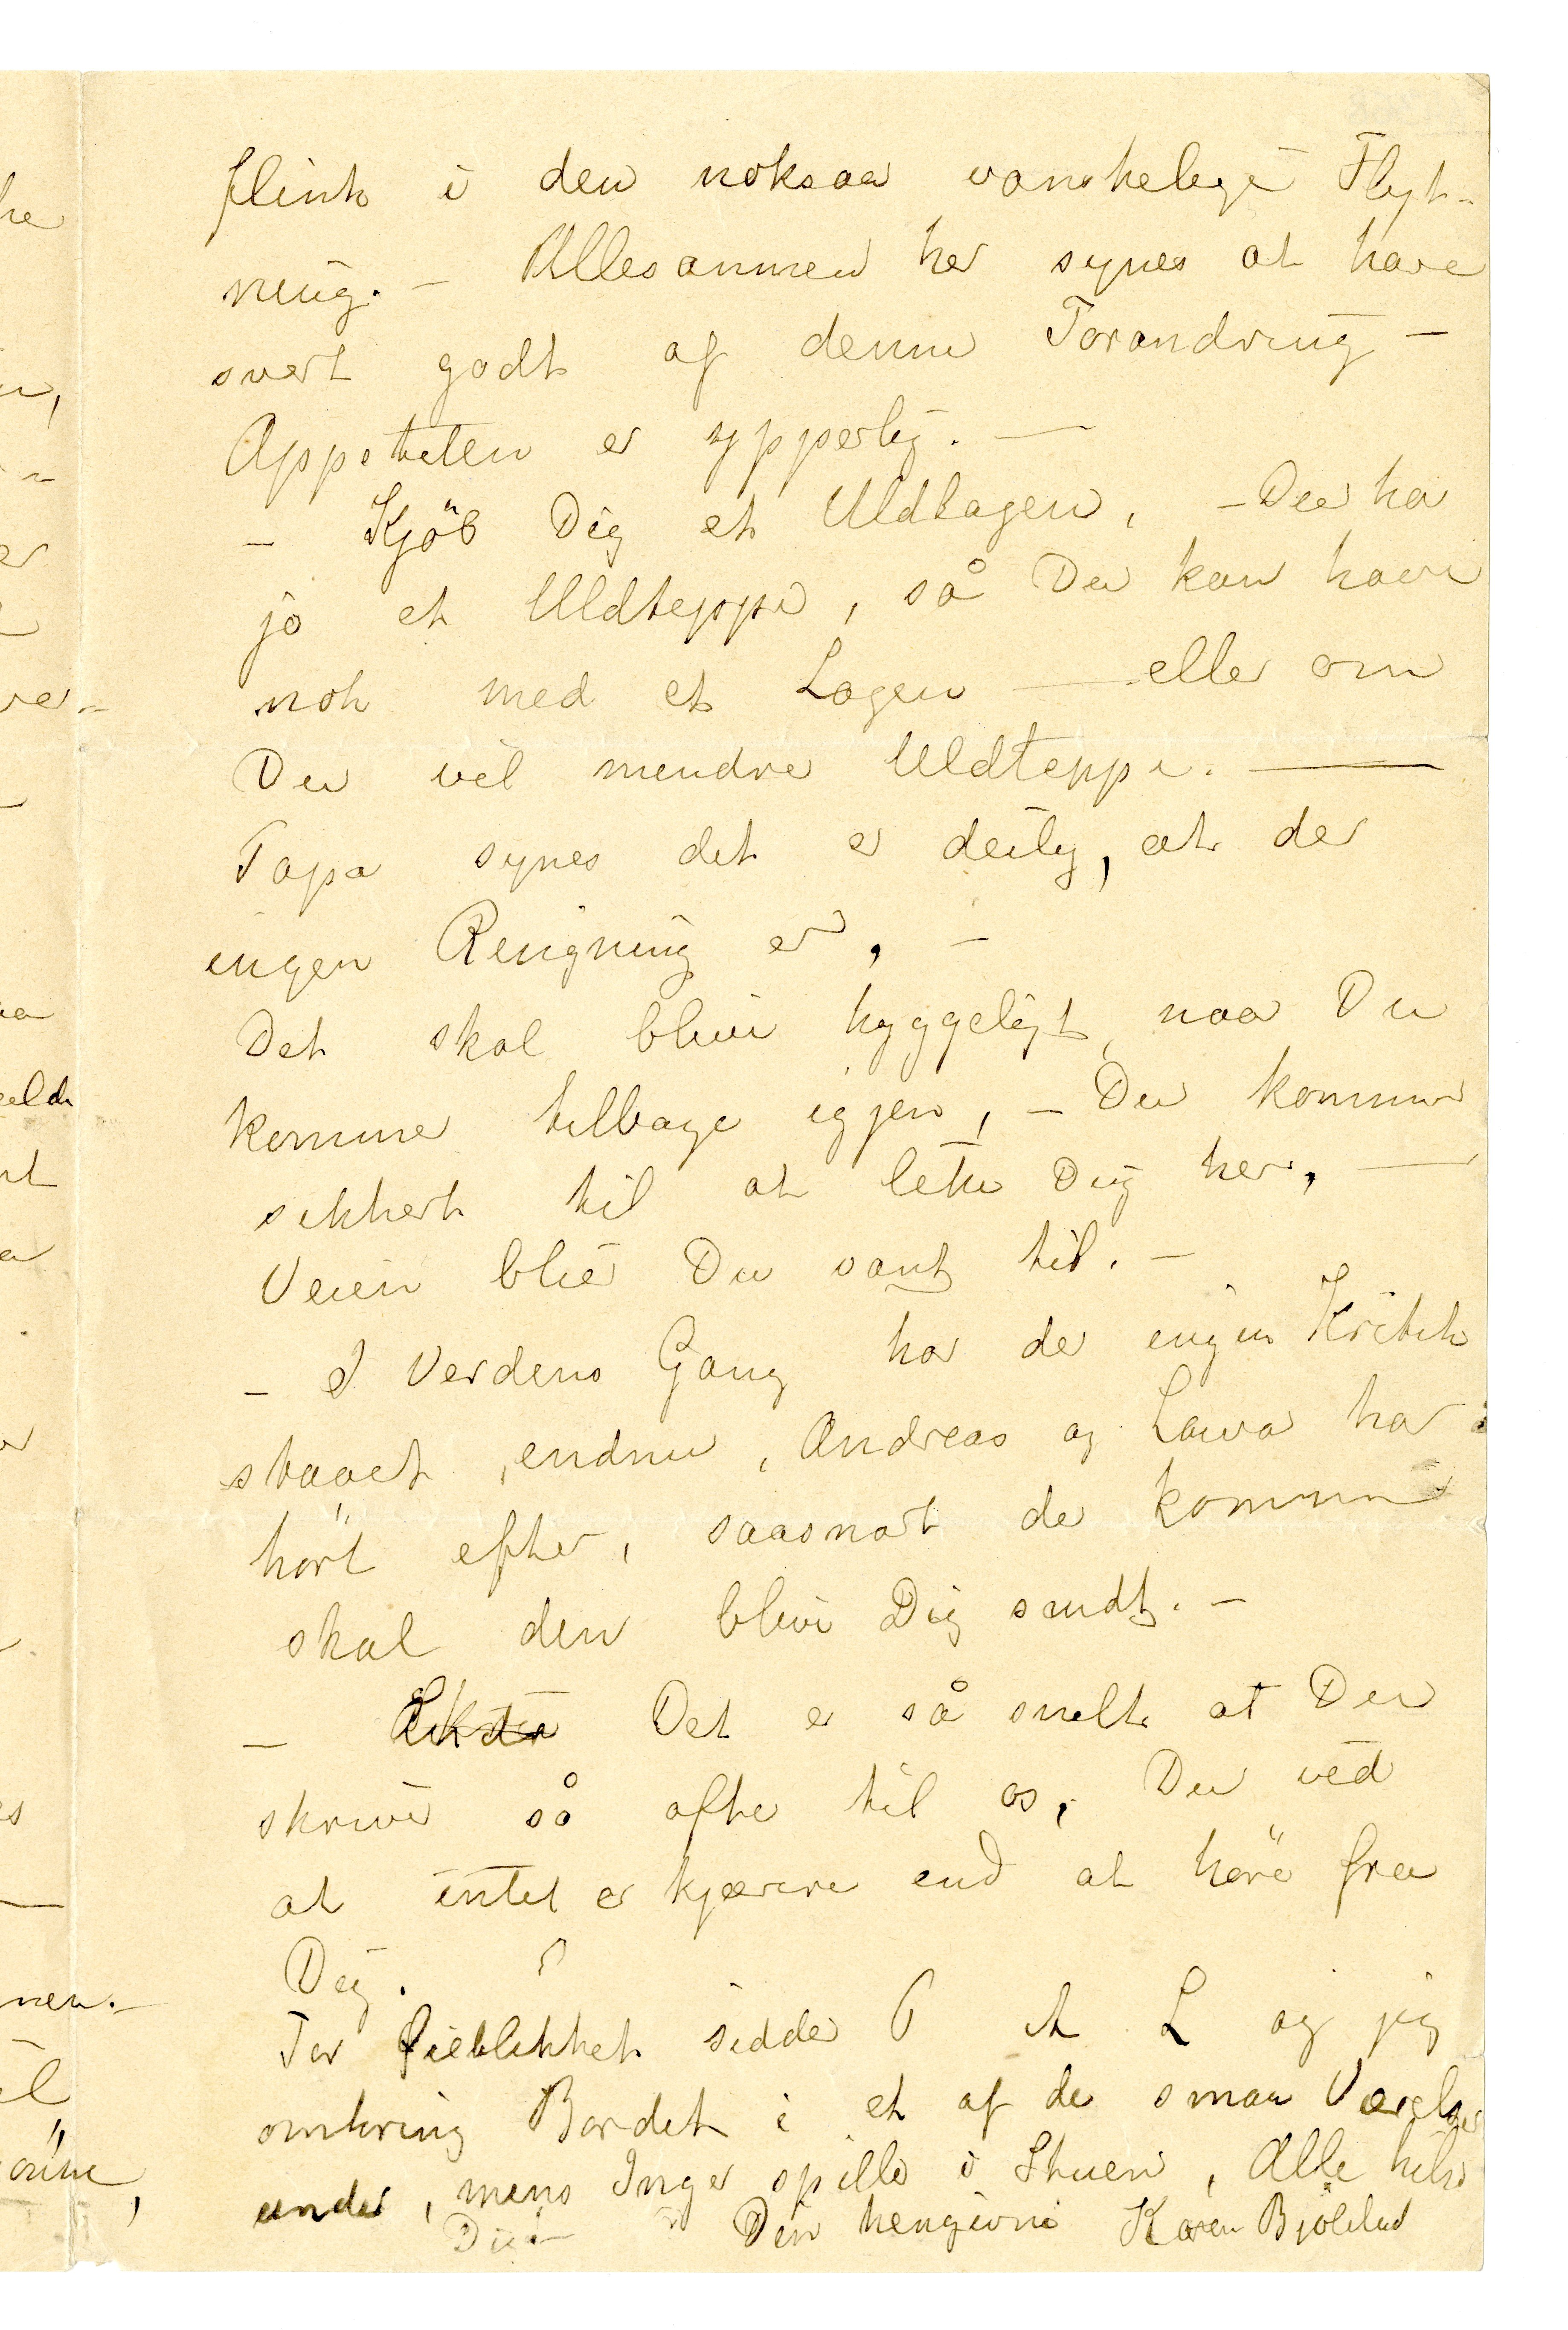 flink i den noksaa vanskelige Flyt-
ning. – Allesammen her synes at have
svert godt af denne Forandring –
Appetiten er ypperlig. —
– Kjöb Dig et Uldlagen, – Du har
jo et Uldteppe, så Du kan have
nok med et Lagen — eller om
Du vil mendre Uldteppe. —
Papa synes det er deilig, at der
ingen Ringning er, –
Det skal blive hyggeligt, naar Du
kommer tilbage igjen, – Du kommer
sikkert til at lette Dig her, —
Veien blier Du vant til. –
– I Verdens Gang har der ingen Kritik
staaet endnu, Andreas og Laura har
hört efter, saasnart de kommer
skal den blive Dig sendt. –
– Det er så snelt at Du
skriver så ofte til os, Du ved
at intet er kjærere end at höre fra
Dig.
For Öieblikket sidder P A L og jeg
omkring Bordet i et af de smaa Værelser
under, mens Inger spiller i Stuen, Alle hilser
Dig – Din hengivne Karen Bjölstad
he
n,
er
ver-
eelde
nt
es
nen. –
el